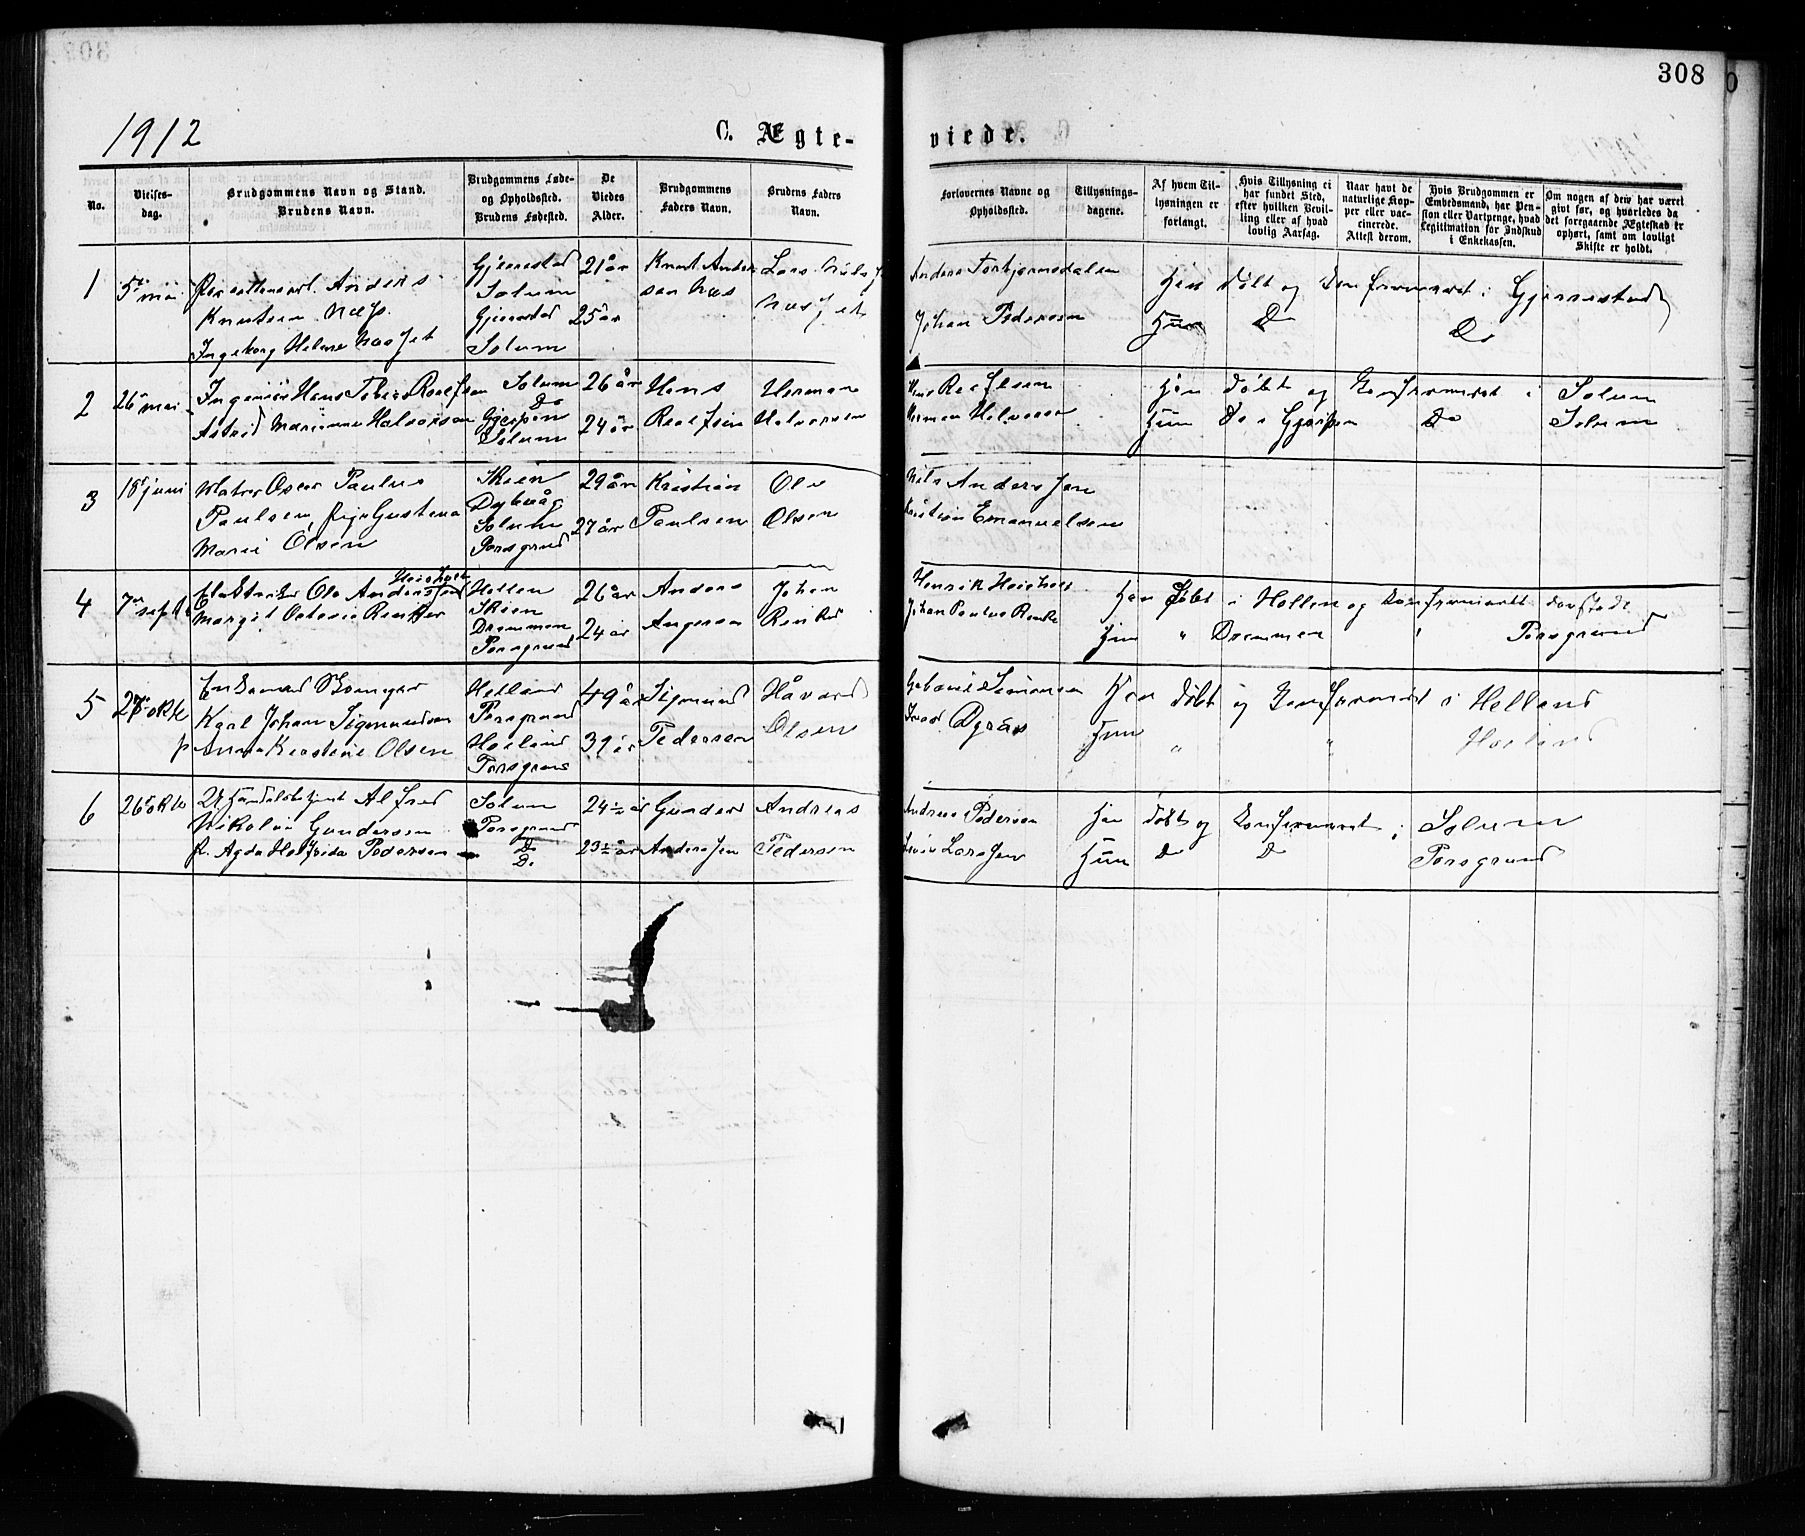 308
1912
C. Ægte-
viede.
No.
Vielses-
dag.
Brudgommens Navn og Stand.
Brudens Navn.
Brudgommens Føde-
og Opholdssted.
Brudens Fødested.
De
Viedes
Alder.
Brudgommens
Faders Navn.
Brudens Faders
Navn.
Forlovernes Navne og
Opholdssted.
Tillysnings-
dagene.
Af hvem Til-
lysningen er
forlangt.
Hvis Tillysning ei
har fundet Sted,
efter hvilken Bevil-
ling eller af hvad
lovlig Aarsag.
Naar havt de
naturlige Kop-
per eller vac-
cinerede.
Attest derom.
Hvis Brudgommen er
Embedsmand, har Pen-
sion eller Vartpenge, hvad
Legitimation for Indskud
i Enkekassen.
Om nogen af dem har været
gift før, og hvorledes da
det foregaaende Ægteskab er
ophørt, samt om lovligt
Skifte er holdt.
1
5te mai
Anders
Knutsen Næs.
Ingeborg Helene
Gjerrestad
Solum
Gjerrestad
Solum
21 år
25 år
Knut Anders
sen Næs
Lars Nils
Anders Torbjørnsdalen
Johan Pedersen
Han Døbt og Konfirmeret i Gjerrestad
Hun Do Do
2
26 mai
Ingeniør Hans Roelfsen
Astrid Marianne Halvorsen
Solum
Do
Gjerpen
Solum
26 år
24 år
Hans
Roelfsen
Herman
Halvorsen
Hans Roelfsen
Herman Halvorsen
Han døbt og Konfirmeret i Solum
Hun Do i Gjerpen Do Solum
3
18 juni
Matros Oscar Paulus
Paulsen, Pige Gustava
Marie Olsen
Skien
Dybvåg
Solum
Porsgrund
29 år
27 år
Kristian
Paulsen
Ole
Olsen
Nils Anderssen
Kristian Emanuelsen
4
7de septb
Ole Anderssen
Margit Octavie Renker
Hollen
Skien
Drammen
Porsgrund
26 år
24 år
Anders
Johan
Henrik Heisholt
Johan Paulus
Han Døbt i Hollen og Konfirmeret
Hun " Drammen " Porsgrund
5
27 okt
Enkemand
Karl Johan Sigmundsen
p. Anna Kirstine Olsen
Helland
Porsgrund
Porsgrund
49 år
39 år
Sigmund
Pedersen
Håvard
Olsen
Simonsen
Han døbt og Konfirmeret i Helland
Hun " "
6
26 okt
Alfred
Nikolai Gundersen
p. Agda Pedersen
Solum
Porsgrund
Do
Do
24½ år
23½ år
Gunder
Anderssen
Andreas
Pedersen
Andreas Pedersen
Larssen
Han døbt og Konfirmeret i Solum
Hun Do Do Porsgrund